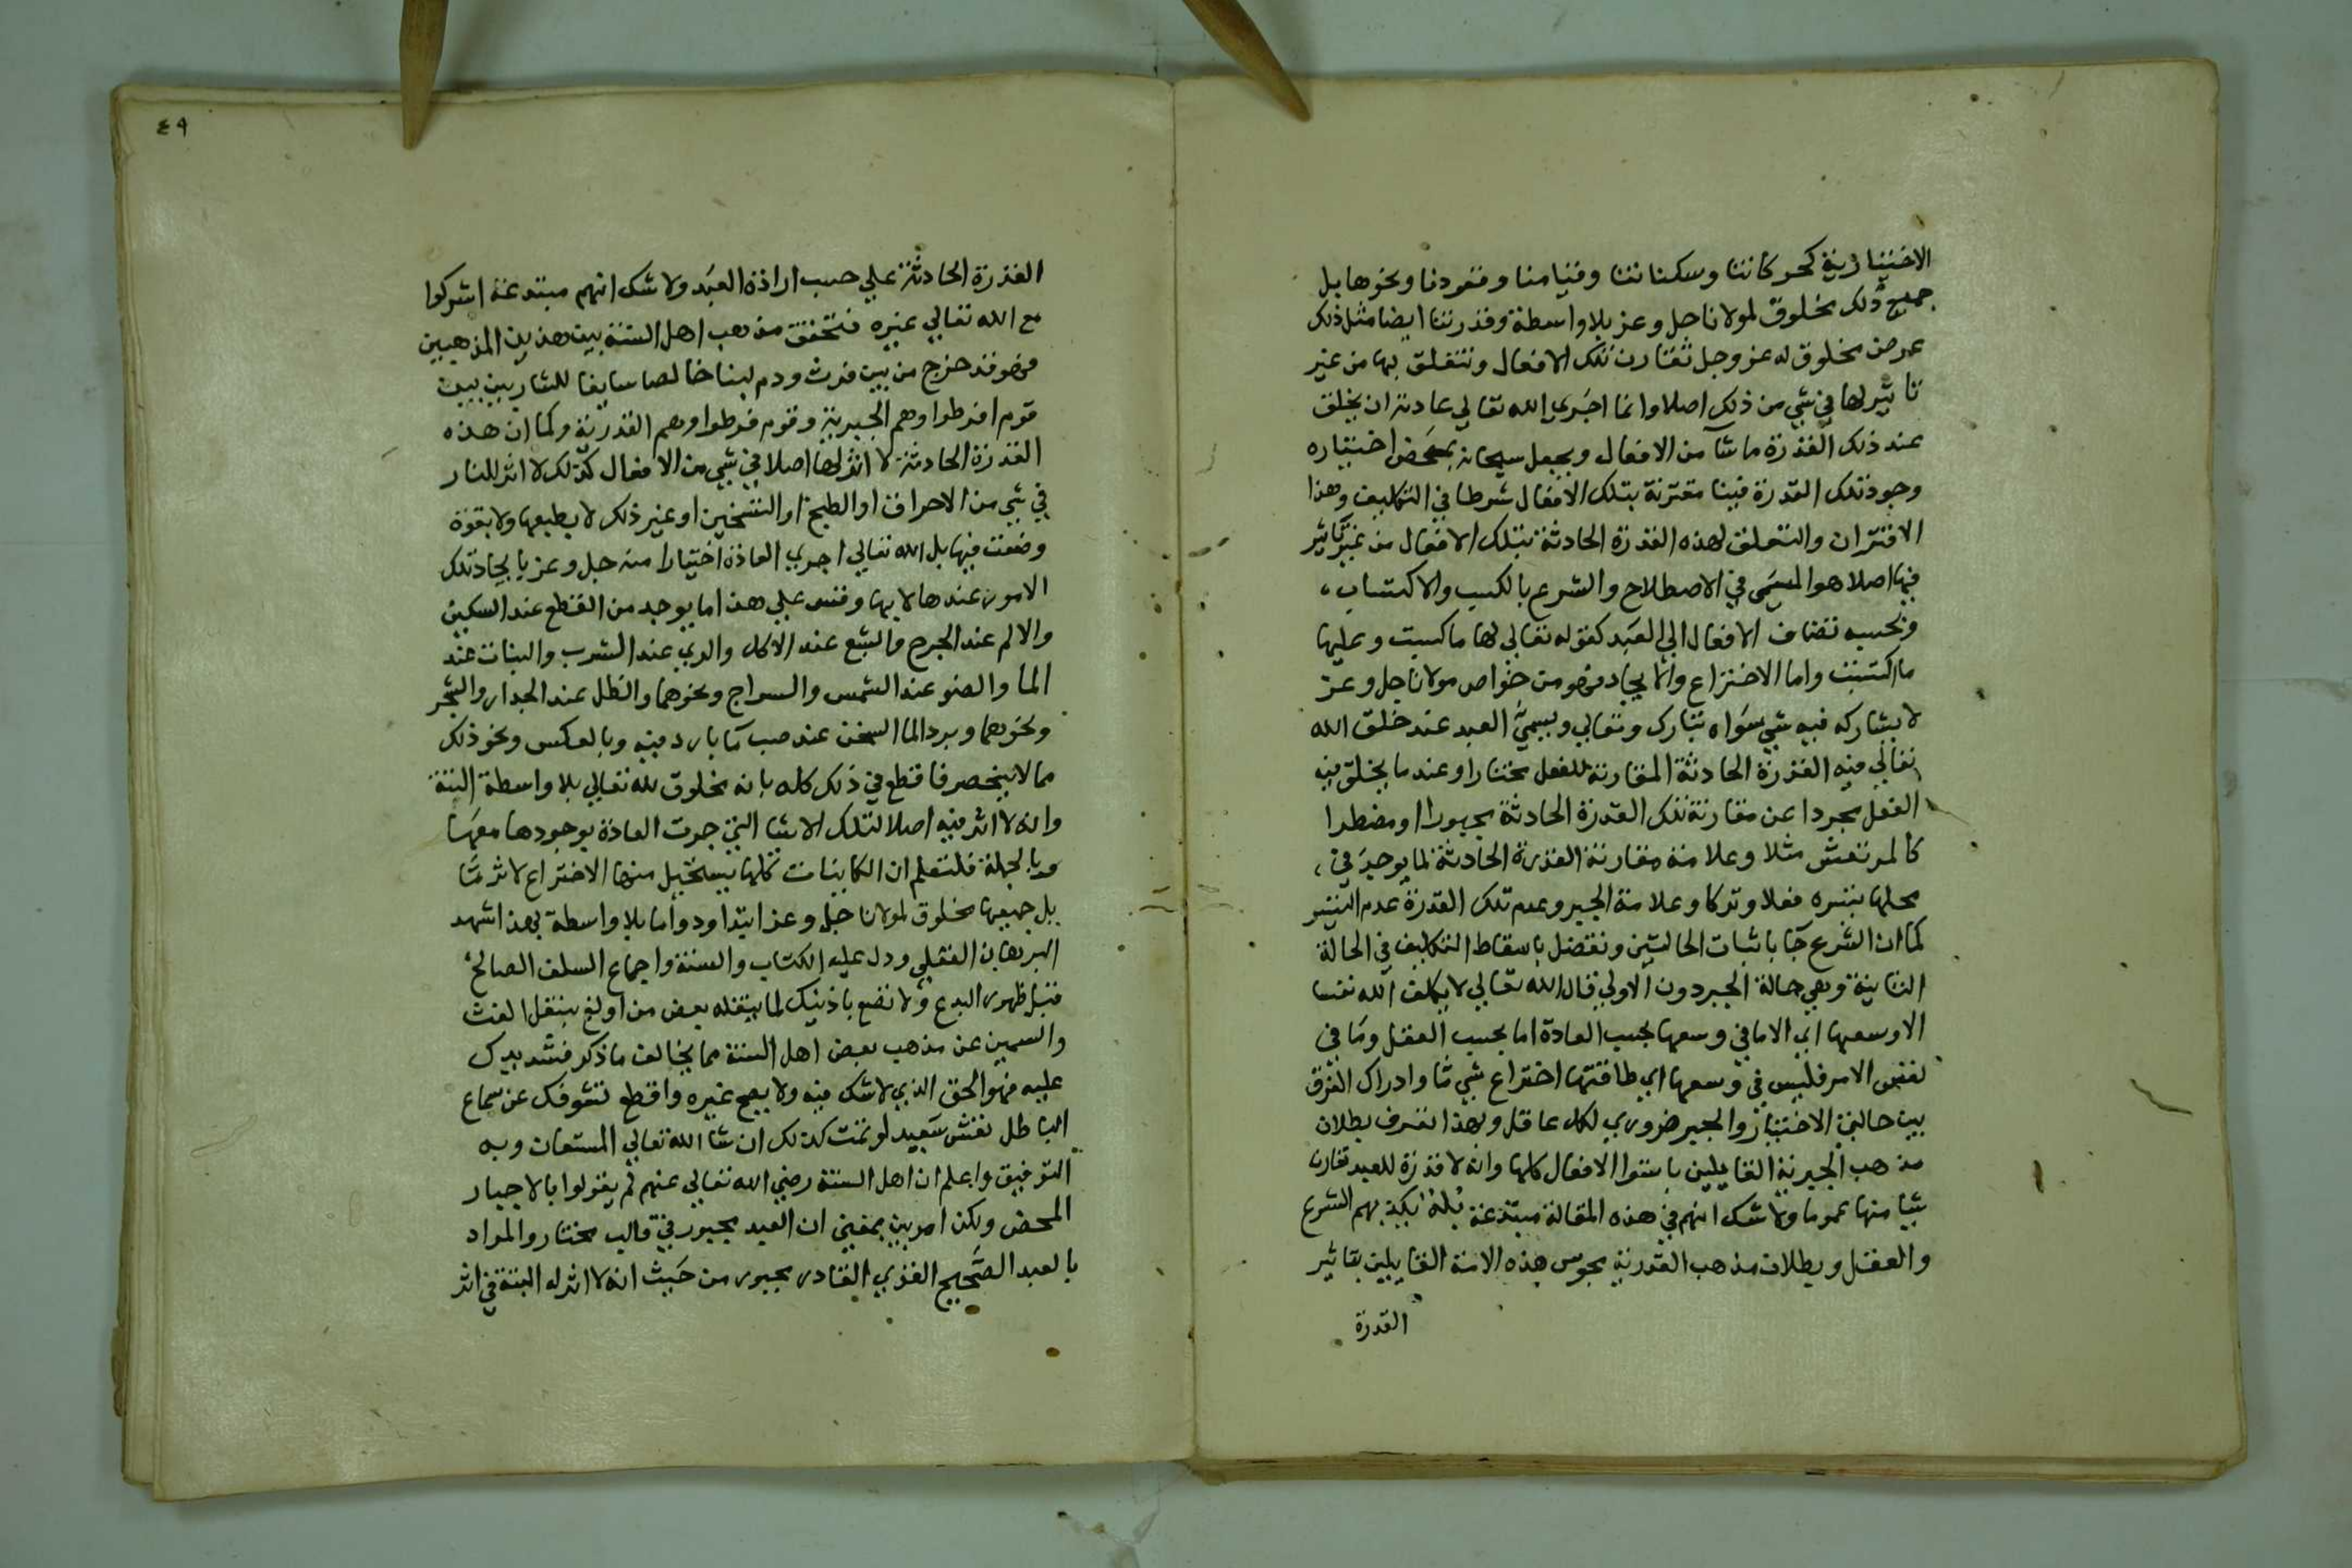 الاختيارية كحركاتنا وسكناتنا وقيامنا وقعودنا ونحوها بل
جميع ذلك مخلوق لمولانا جل وعز بلا واسطة وقدرتنا ايضا مثل ذلك
عرض مخلوق له عز وجل تقارن تلك الافعال وتتعلق بها من غير
تاثير لها في شي من ذلك اصلا وانما اجري الله تعالي عادته ان يخلق
عند ذلك القدرة ما شآ من الافعال وجعل سبحانه بمحض اختياره
وجود تلك القدرة فينا مقترنة بتلك الافعال شرطا في التكليف وهذا
الاقتران والتعلق لهذه القدرة الحادثة بتلك الافعال من غير تاثير
فيها اصلا هو المسمى في الاصطلاح والشرع بالكسب والاكتساب،
وبحسبه تضاف الافعال الي العبد كقوله تعالي لها ما كسبت وعليها
ما اكتسبت واما الاختراع والايجاد فهو من خواص مولانا جل وعز
لا يشاركه فيه شي سواه تبارك وتعالي ويسمي العبد عند خلق الله
تعالي فيه القدرة الحادثة المقارنة للفعل مختارا وعند ما يخلق فيه
الفعل مجردا عن مقارنة تلك القدرة الحادثة مجبورا او مضطرا
كالمرتعش مثلا وعلامة مقارنة القدرة الحادثة لما يوجد في،
محلها تيسره فعلا وتركا وعلامة الجبر وعدم تلك القدرة عدم التيسر
كما ان الشرع جآ باثبات الحالتين وتفضل باسقاط التكليف في الحالة
الثانية وهي حالة الجبر دون الاولي قال الله تعالي لا يكلف الله نفسا
الا وسعها اي الا ما في وسعها بحسب العادة اما بحسب العقل وما في
نفس الامر فليس في وسعها اي طاقتها اختراع شي ما وادراك الفرق
بين حالتي الاختيار والجبر ضروري لكل عاقل وبهذا تعرف بطلان
مذهب الجبرية القايلين باستوا الافعال كلها وانه لا قدرة للعبد تقارن
شيا منها عموما ولا شك انهم في هذه المقالة مبتدعة بله يكذبهم الشرع
والعقل وبطلان مذهب القدرية مجوس هذه الامة القايلين بتاثير
القدرة
٤٩
القدرة الحادثة علي حسب ارادة العبد ولا شك انهم مبتدعة اشركوا
مع الله تعالي غيره فتحقق مذهب اهل السنة بين هذين المذهبين
فهو قد خرج من بين فرث ودم لبنا خالصا سايغا للشاربين بين
قوم افرطوا وهم الجبرية وقوم فرطوا وهم القدرية وكما ان هذه
القدرة الحادثة لا اثر لها اصلا في شي من الافعال كذلك لا اثر للنار
في شي من الاحراق او الطبخ او التسخين او غير ذلك لا بطبعها ولا بقوة
وضعت فيها بل الله تعالي اجري العادة اختيارا منه جل وعز بايجاد تلك
الامور عندها لا بها وقس علي هذا ما يوجد من القطع عند السكين
والالم عند الجرح والشبع عند الاكل والري عند الشرب والنبات عند
الما والضو عند الشمس والسراج ونحوهما والظل عند الجدار والشجر
ونحوهما وبرد الما السخن عند صب مآ بارد فيه وبالعكس ونحو ذلك
مما لا ينحصر فاقطع في ذلك كله بانه مخلوق لله تعالي بلا واسطة البتة
وانه لا اثر فيه اصلا لتلك الاشيا التي جرت العادة بوجودها معها
وبالجملة فلتعلم ان الكاينات كلها يستحيل منها الاختراع لاثر ما
بل جميعها مخلوق لمولانا جل وعز ابتدا ودواما بلا واسطة بهذا شهد
البرهان العقلي ودل عليه الكتاب والسنة واجماع السلف الصالح
قبل ظهور البدع ولا تضع باذنيك لما ينقله بعض من اولع بنقل الغث
والسمين عن مذهب بعض اهل السنة مما يخالف ما ذكر فشد يدك
عليه فهو الحق الذي لا شك فيه ولا يصح غيره واقطع تشوفك عن سماع
الباطل تعش سعيد او تمت كذلك ان شا الله تعالي المستعان وبه
التوفيق واعلم ان اهل السنة رضي الله تعالي عنهم لم يقولوا بالاجبار
المحض ولكن امر بين بمعني ان العبد مجبور في قالب مختار والمراد
بالعبد الصحيح القوي القادر مجبور من حيث انه لا اثر له البتة في اثر